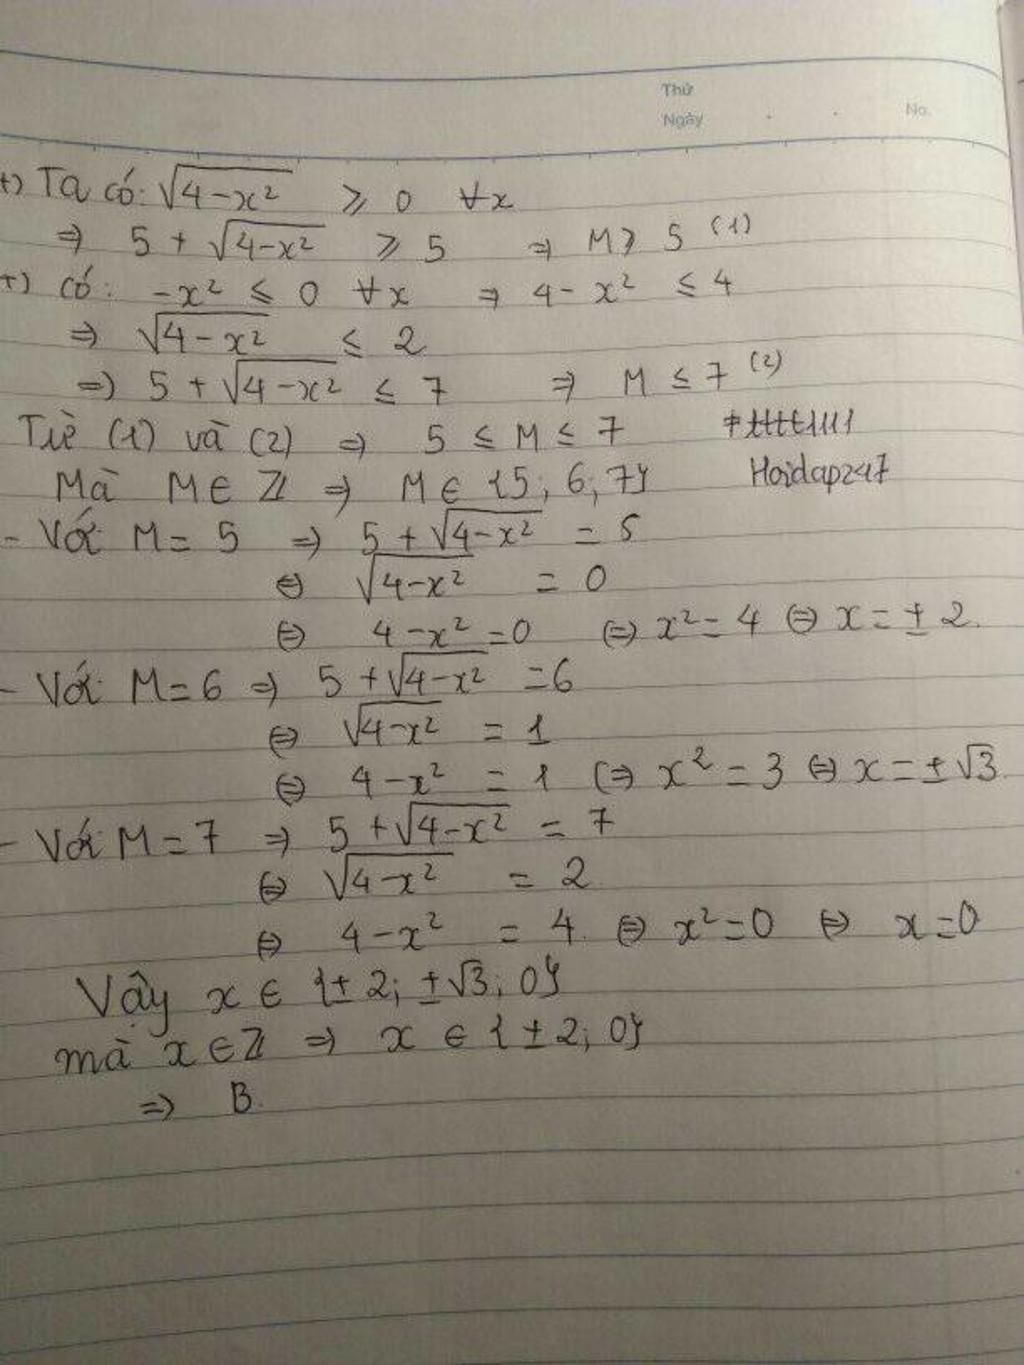 Thứ
Ngày
No.
+) Ta có: √(4-x²) ⩾ 0 ∀x
⇒ 5 + √(4-x²) ⩾ 5 ⇒ M ⩾ 5 (1)
+) Có: -x² ≤ 0 ∀x ⇒ 4 - x² ≤ 4
⇒ √(4-x²) ≤ 2
⇒ 5 + √(4-x²) ≤ 7 ⇒ M ≤ 7 (2)
Từ (1) và (2) ⇒ 5 ≤ M ≤ 7
Mà M ∈ Z ⇒ M ∈ {5; 6; 7} Hoidap247
- Với M = 5 ⇒ 5 + √(4-x²) = 5
⇔ √(4-x²) = 0
⇔ 4-x² = 0 ⇔ x² = 4 ⇔ x = ± 2.
- Với M = 6 ⇒ 5 + √(4-x²) = 6
⇔ √(4-x²) = 1
⇔ 4-x² = 1 ⇔ x² = 3 ⇔ x = ±√3.
- Với M = 7 ⇒ 5 + √(4-x²) = 7
⇔ √(4-x²) = 2
⇔ 4-x² = 4. ⇔ x² = 0 ⇔ x = 0
Vậy x ∈ {± 2; ±√3; 0}
mà x ∈ Z ⇒ x ∈ {± 2; 0}
⇒ B.